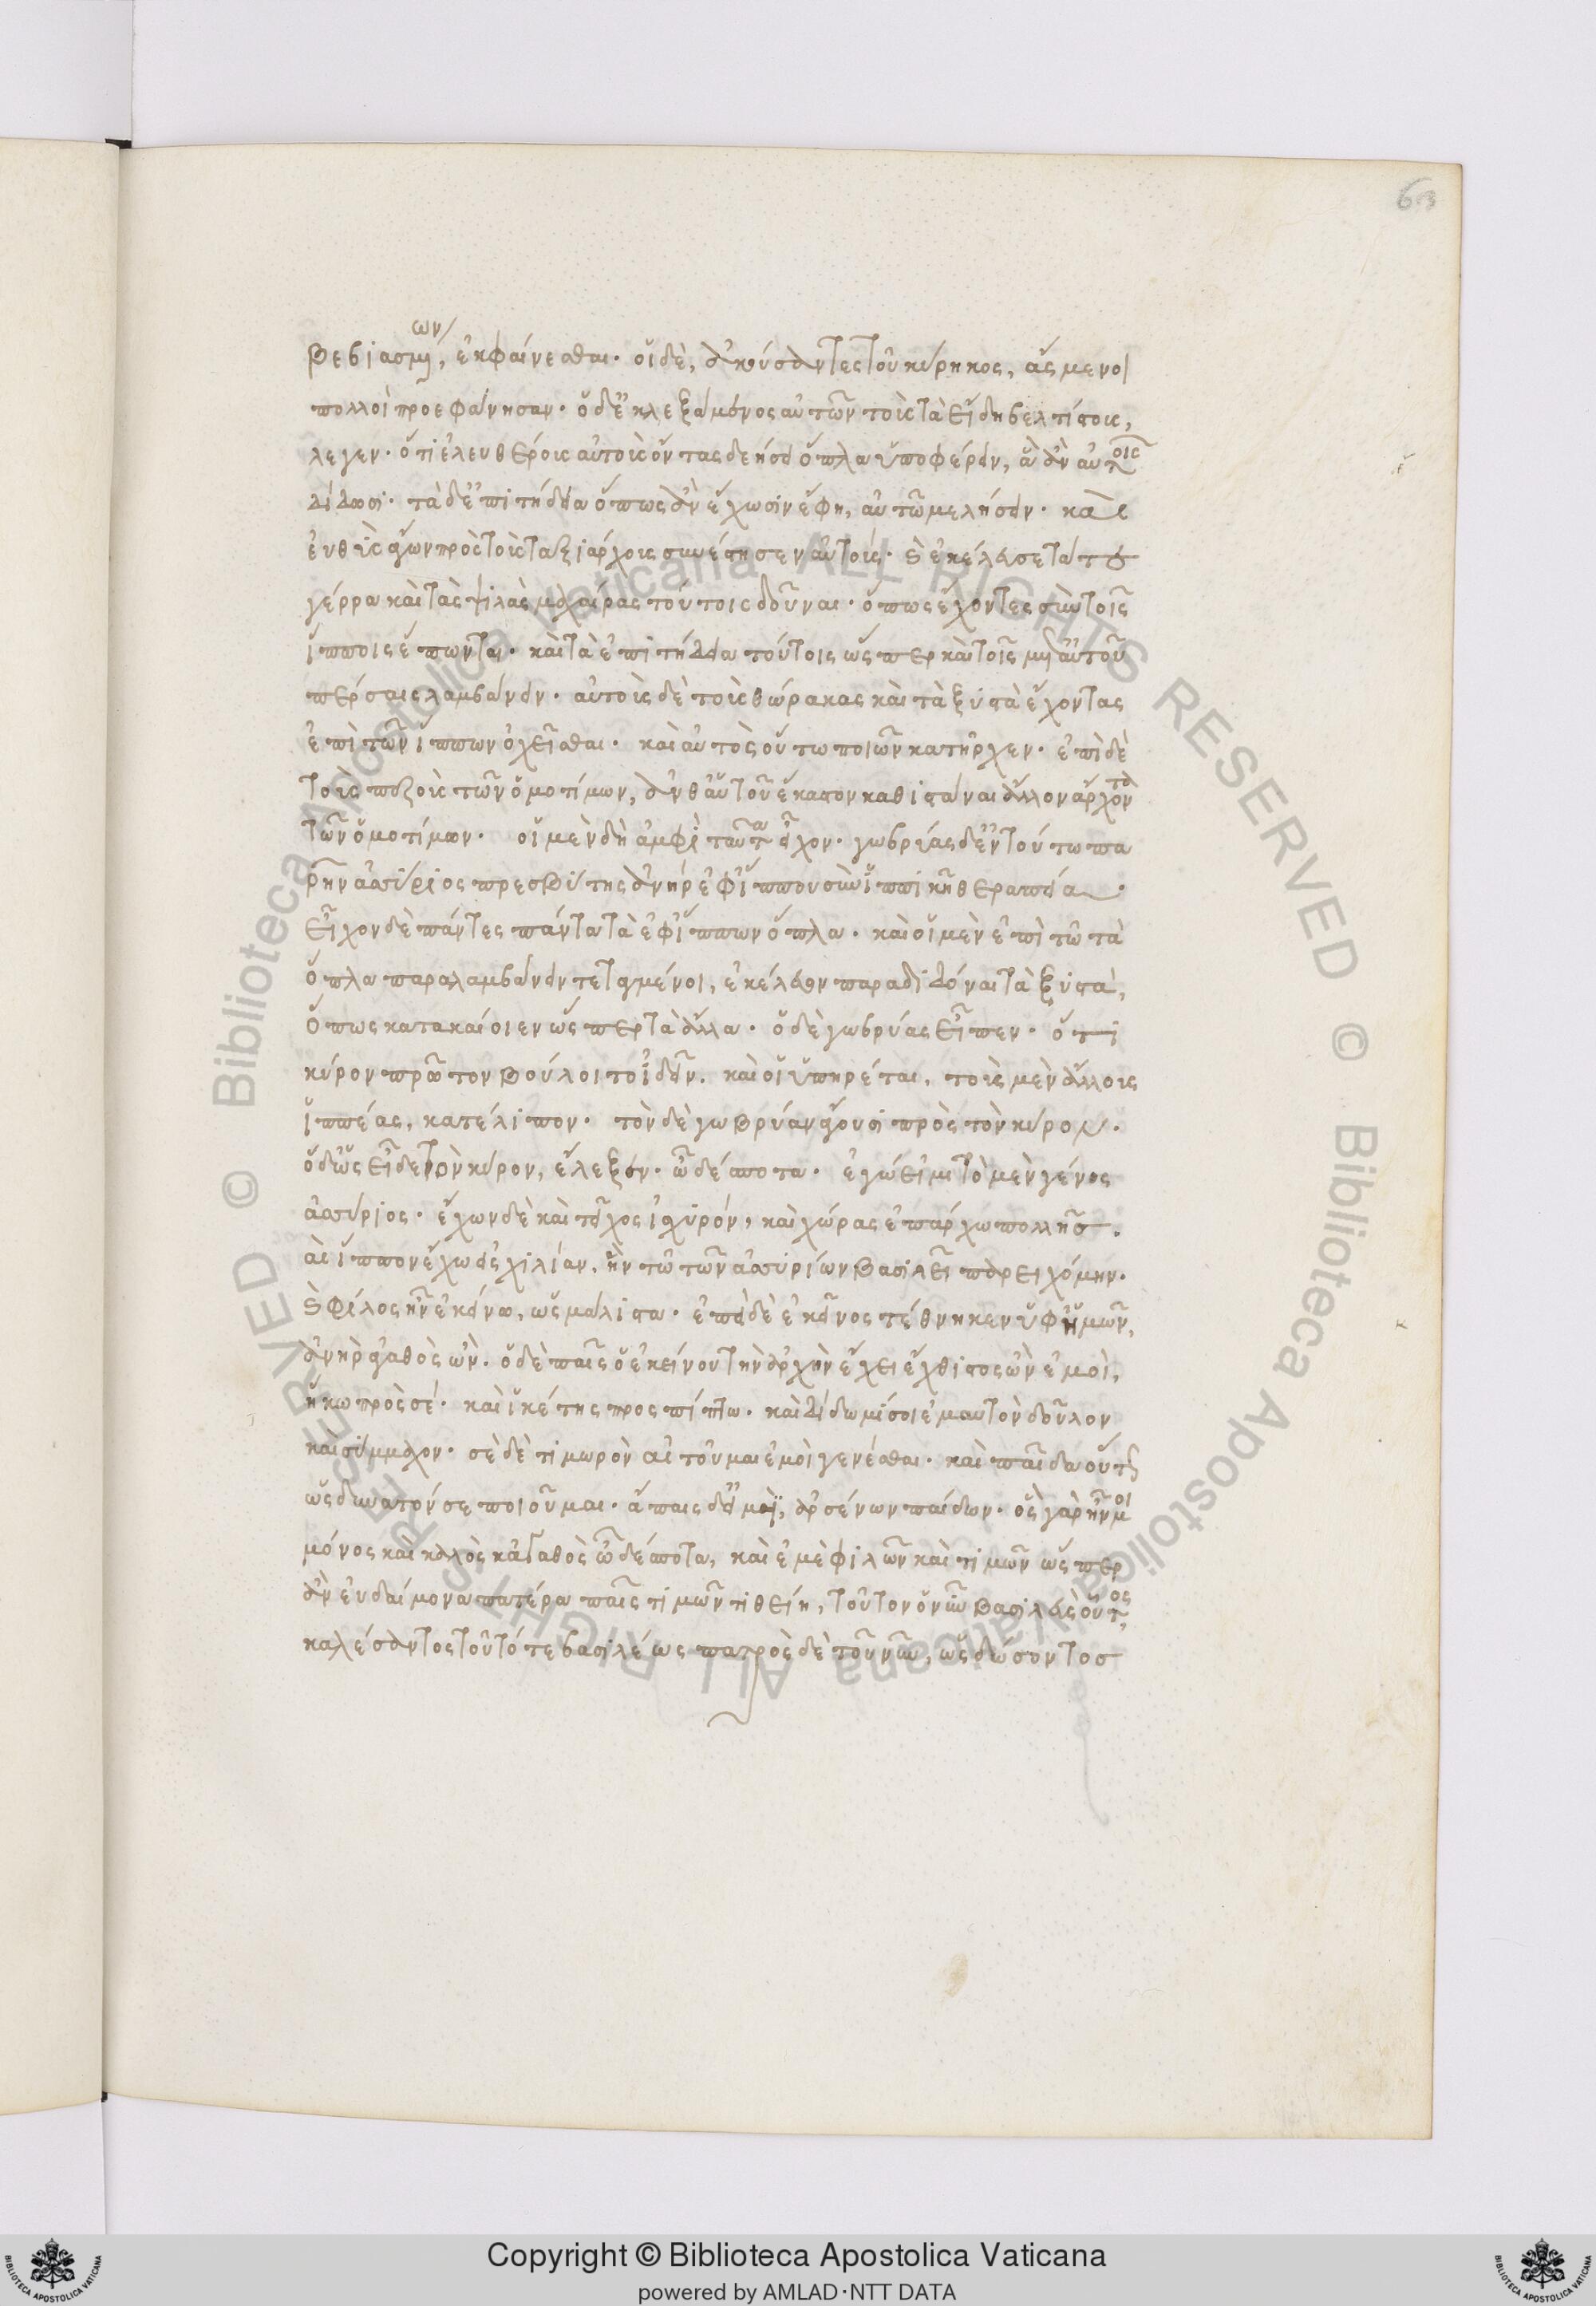 63
βεβιασμένων, ἐκφαίνεσθαι. οἱ δὲ, ἀκούσαντες τοῦ κύρηκος, ἅσμενοι
πολλοὶ προεφάνησαν. ὁ δ' ἐκλεξάμενος αὐτῶν τοὺς τὰ εἴδη βελτίστους,
λεγεν. ὅτι ἐλευθέρους αὐτοὺς ὄντας δεήσει ὅπλα ὑποφέρειν, ἃ ἂν αὐτοῖς
διδῶσι. τὰ δ' ἐπιτήδεια ὅπως ἂν ἔχωσιν ἔφη, αὐτῶ μελήσειν. καὶ
εὐθὺς ἄγων πρὸς τοὺς ταξιάρχους συνέστησεν αὐτούς. καὶ ἐκέλευσε τά τε
γέρρα καὶ τὰς ψιλὰς μαχαίρας τούτοις δοῦναι. ὅπως ἔχοντες σὺν τοῖς
ἵπποις ἕπωνται. καὶ τὰ ἐπιτήδεια τούτοις ὥσπερ καὶ τοῖς μετ' αὐτοῦ
πέρσαις λαμβάνειν. αὐτοὺς δὲ τοὺς θώρακας καὶ τὰ ξυστὰ ἔχοντας
ἐπὶ τῶν ἵππων ὀχεῖσθαι. καὶ αὐτὸς οὕτω ποιῶν κατῆρχεν. ἐπὶ δὲ
τοὺς πεζοὺς τῶν ὁμοτίμων, ἀνθ' αὑτοῦ ἕκαστον καθιστάναι ἄλλον ἄρχοντα
τῶν ὁμοτίμων. οἱ μὲν δὴ ἀμφὶ ταῦτα εἶχον. γωβρύας δ' ἐν τούτω πα
ρῆν ἀσσύριος πρεσβύτης ἀνὴρ ἐφ' ἵππου σὺν ἱππικῆ θεραπεία.
εἶχον δὲ πάντες πάντα τὰ ἐφ' ἵππων ὅπλα. καὶ οἱ μὲν ἐπὶ τῶ τὰ
ὅπλα παραλαμβάνειν τεταγμένοι, ἐκέλευον παραδιδόναι τὰ ξυστὰ,
ὅπως κατακαίοιεν ὥσπερ τὰ ἄλλα. ὁ δὲ γωβρύας εἶπεν. ὅτι
κύρον πρῶτον βούλοιτο ἰδεῖν. καὶ οἱ ὑπηρέται, τοὺς μὲν ἄλλους
ἱππέας, κατέλιπον. τὸν δὲ γωβρύαν ἄγουσι πρὸς τὸν κύρον.
ὁ δ' ὡς εἶδε τὸν κύρον, ἔλεξεν. ὦ δέσποτα. ἐγώ εἰμι τὸ μὲν γένος
ἀσσύριος. ἔχων δὲ καὶ τεῖχος ἰσχυρόν, καὶ χώρας ἐπάρχω πολλῆς.
καὶ ἵππον ἔχω εἰς χιλίαν, ἣν τῶ τῶν ἀσσυρίων βασιλεῖ παρειχόμην.
καὶ φίλος ἦν ἐκείνω, ὡς μάλιστα. ἐπεὶ δὲ ἐκεῖνος τέθνηκεν ὑφ' ἡμῶν,
ἀνὴρ ἀγαθὸς ὤν. ὁ δὲ παῖς ὁ ἐκείνου τὴν ἀρχὴν ἔχει ἔχθιστος ὢν ἐμοὶ,
ἥκω πρὸς σέ. καὶ ἱκέτης προσπίπτω. καὶ δίδωμί σοι ἐμαυτὸν δοῦλον
καὶ σύμμαχον. σὲ δὲ τιμωρὸν αἰτοῦμαι ἐμοὶ γενέσθαι. καὶ παῖδα οὕτως
ὡς δυνατόν σε ποιοῦμαι. ἄπαις δ' εἰμὶ, ἀρσένων παίδων. ὃς γὰρ ἦν μοι
μόνος καὶ καλὸς κἀγαθὸς ὦ δέσποτα, καὶ ἐμὲ φιλῶν καὶ τιμῶν ὥσπερ
ἂν εὐδαίμονα πατέρα παῖς τιμῶν τιθείη, τοῦτον ὁ νῦν βασιλεὺς οὗτος
καλέσαντος τοῦ τότε βασιλέως πατρὸς δὲ τοῦ νῦν, ὡς δώσοντος
Copyright © Biblioteca Apostolica Vaticana
powered by AMLAD·NTT DATA